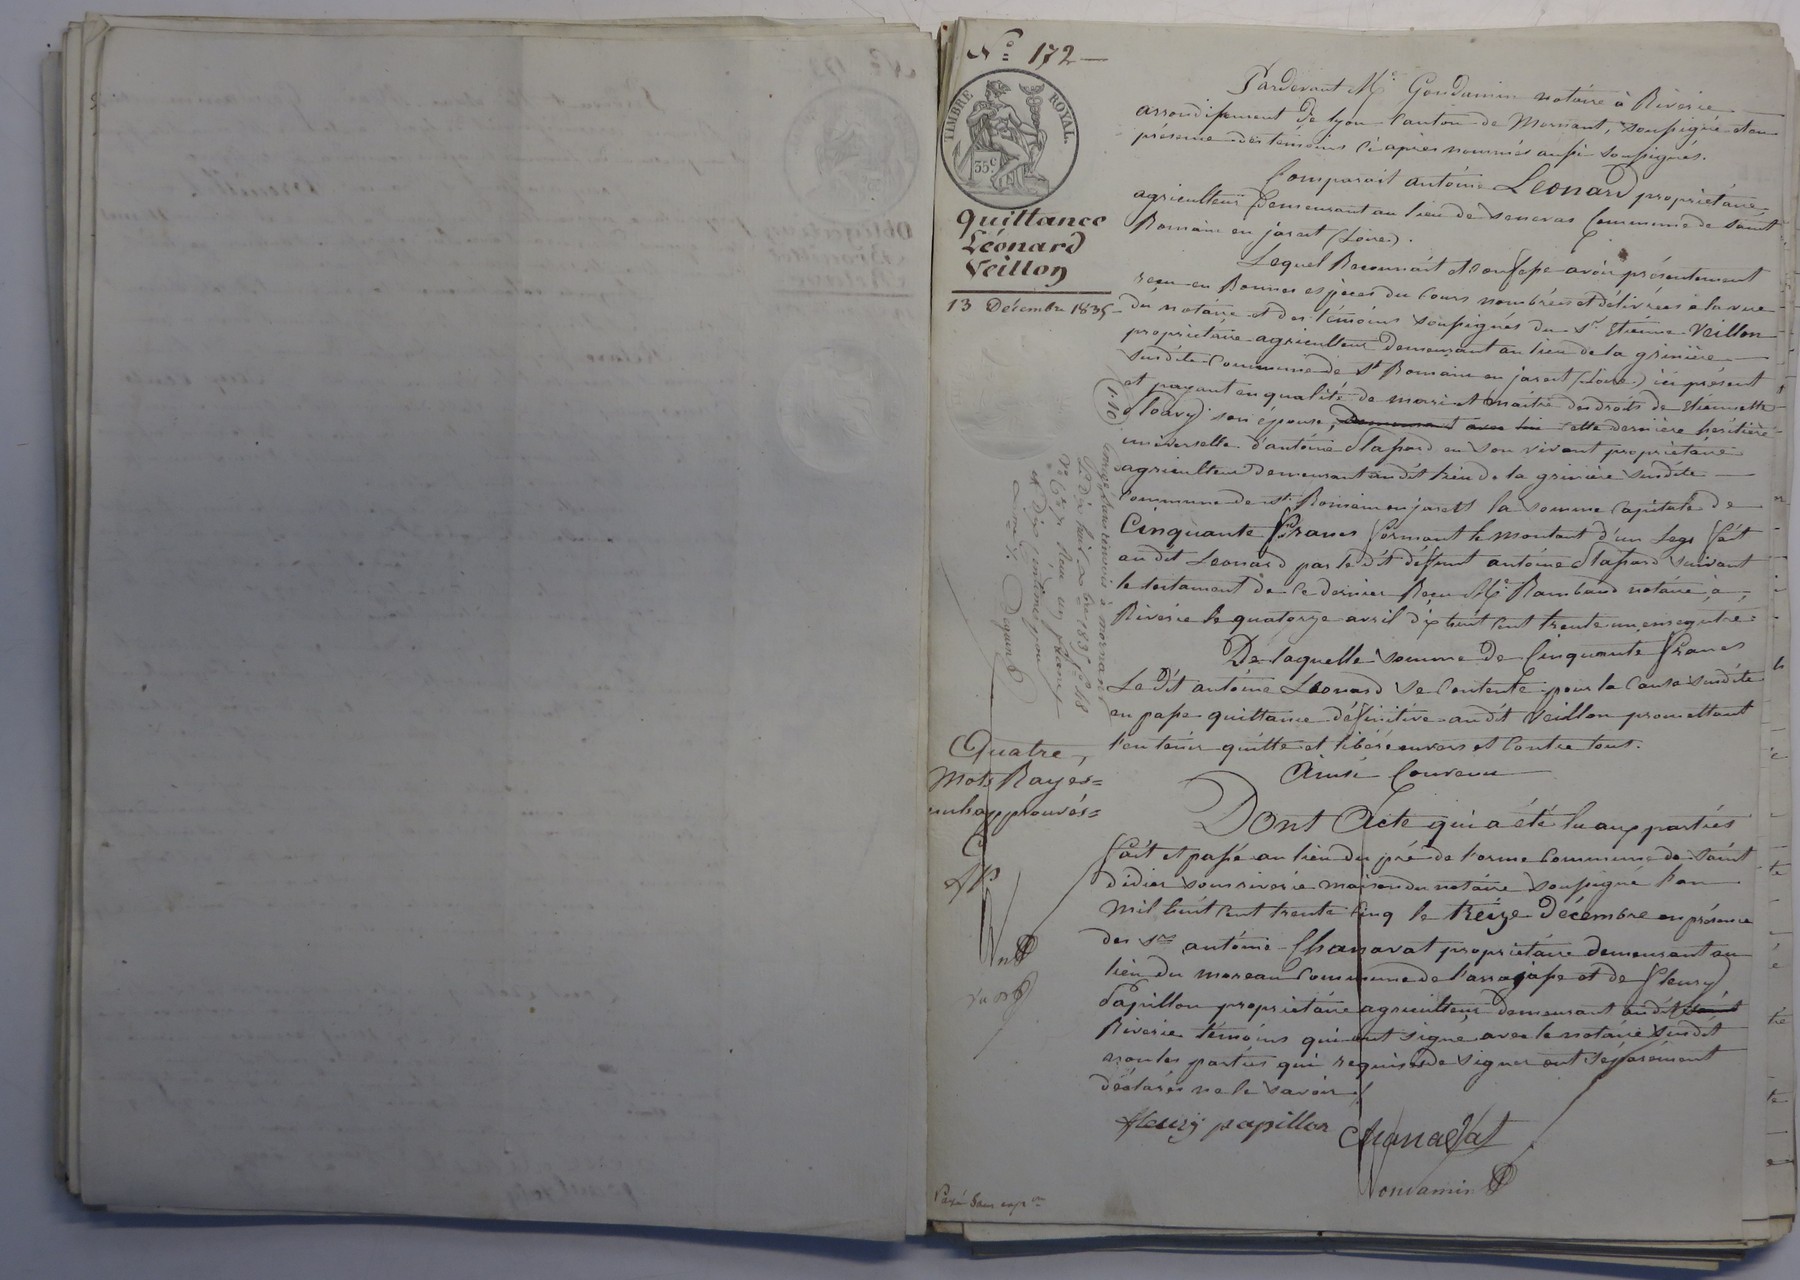 N° 172
TIMBRE ROYAL.
35c
Quittance
Léonard
Veillon
13 Décembre 1835
Pardevant Me Goudamin notaire à Riverie
arrondissement de Lyon canton de Mornant, soussigné et en
présence des témoins ci après nommés aussi soussignés.
Comparait antoine Leonard propriétaire
agriculteur demeurant au lieu de senevas Commune de Saint
Romain en jarest (Loire).
Lequel Reconnait et confesse avoir présentement
reçu en Bonnes espèces du Cours nombrées et délivrées à la vue
du notaire et des témoins soussignés du Sr Etienne Veillon
propriétaire agriculteur demeurant au lieu de la grinière
susdite Commune de St Romain en jarest (Loire) ici présent
et payant en qualité de mari et maitre des droits de Etiennette
son épouse, demeurant avec lui cette dernière heritière
universelle d'antoine en son vivant propriétaire
agriculteur demeurant au dit lieu de la grinière susdite
Commune de St Romain en jarest la somme Capitale de
Cinquante francs formant le montant d'un Legs fait
au dit Leonard par le dit défunt antoine suivant
le testament de ce dernier Reçu Me Rambaud notaire à
Riverie le quatorze avril dix huit cent trente un enregistré
De laquelle somme de Cinquante francs
Le dit antoine Leonard se contente pour la Cause susdite
en passe quittance définitive au dit Veillon promettant
l'en tenir quitte et libéré envers et contre tous.
Ainsi Convenu
Dont Acte qui a été lu aux parties
fait et passé au lieu du pré de l'orme Commune de Saint
didier sous riverie maison du notaire soussigné l'an
Mil huit cent trente Cinq le treize Décembre en présence
des Srs antoine Chanavat propriétaire demeurant au
lieu du moreau Commune de Larajasse et de fleury
Papillon propriétaire agriculteur demeurant au dit
Riverie témoins qui ont signé avec le notaire susdit
non les parties qui requises de signer ont séparément
déclarés ne le savoir
fleury papillon Chanavat
Goudamin
Quatre
Mots Rayés
nuls approuvés
fP
Enregistré à mornant
Le dix huit Xbre 1835 fo 48
Vo Reçu un franc
et dix centimes pour